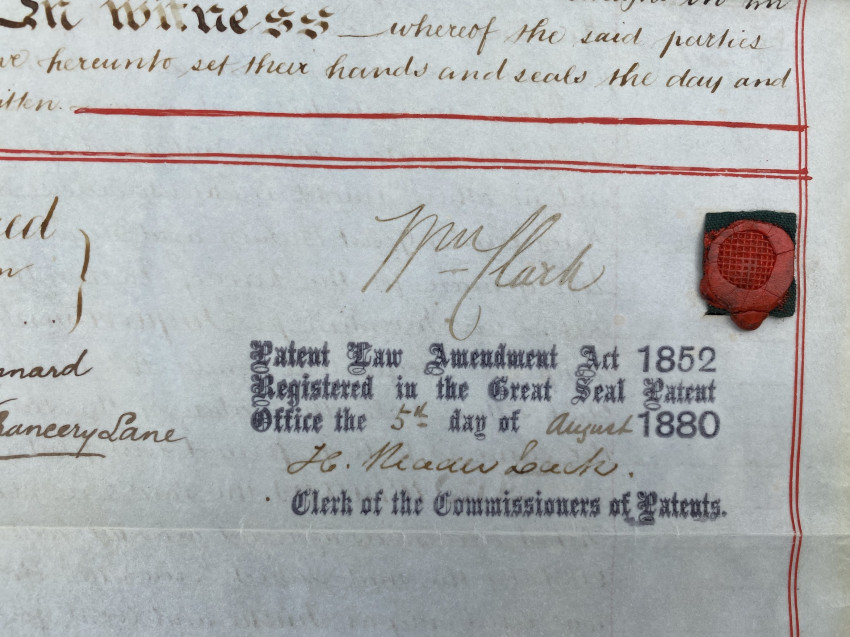 In witness whereof the said parties
hereunto set their hands and seals the day and
itten.
Wm Clark
Patent Law Amendment Act 1852
Registered in the Great Seal Patent
Office the 5th day of August 1880
nard
Chancery Lane
H. Reader Lack.
Clerk of the Commissioners of Patents.